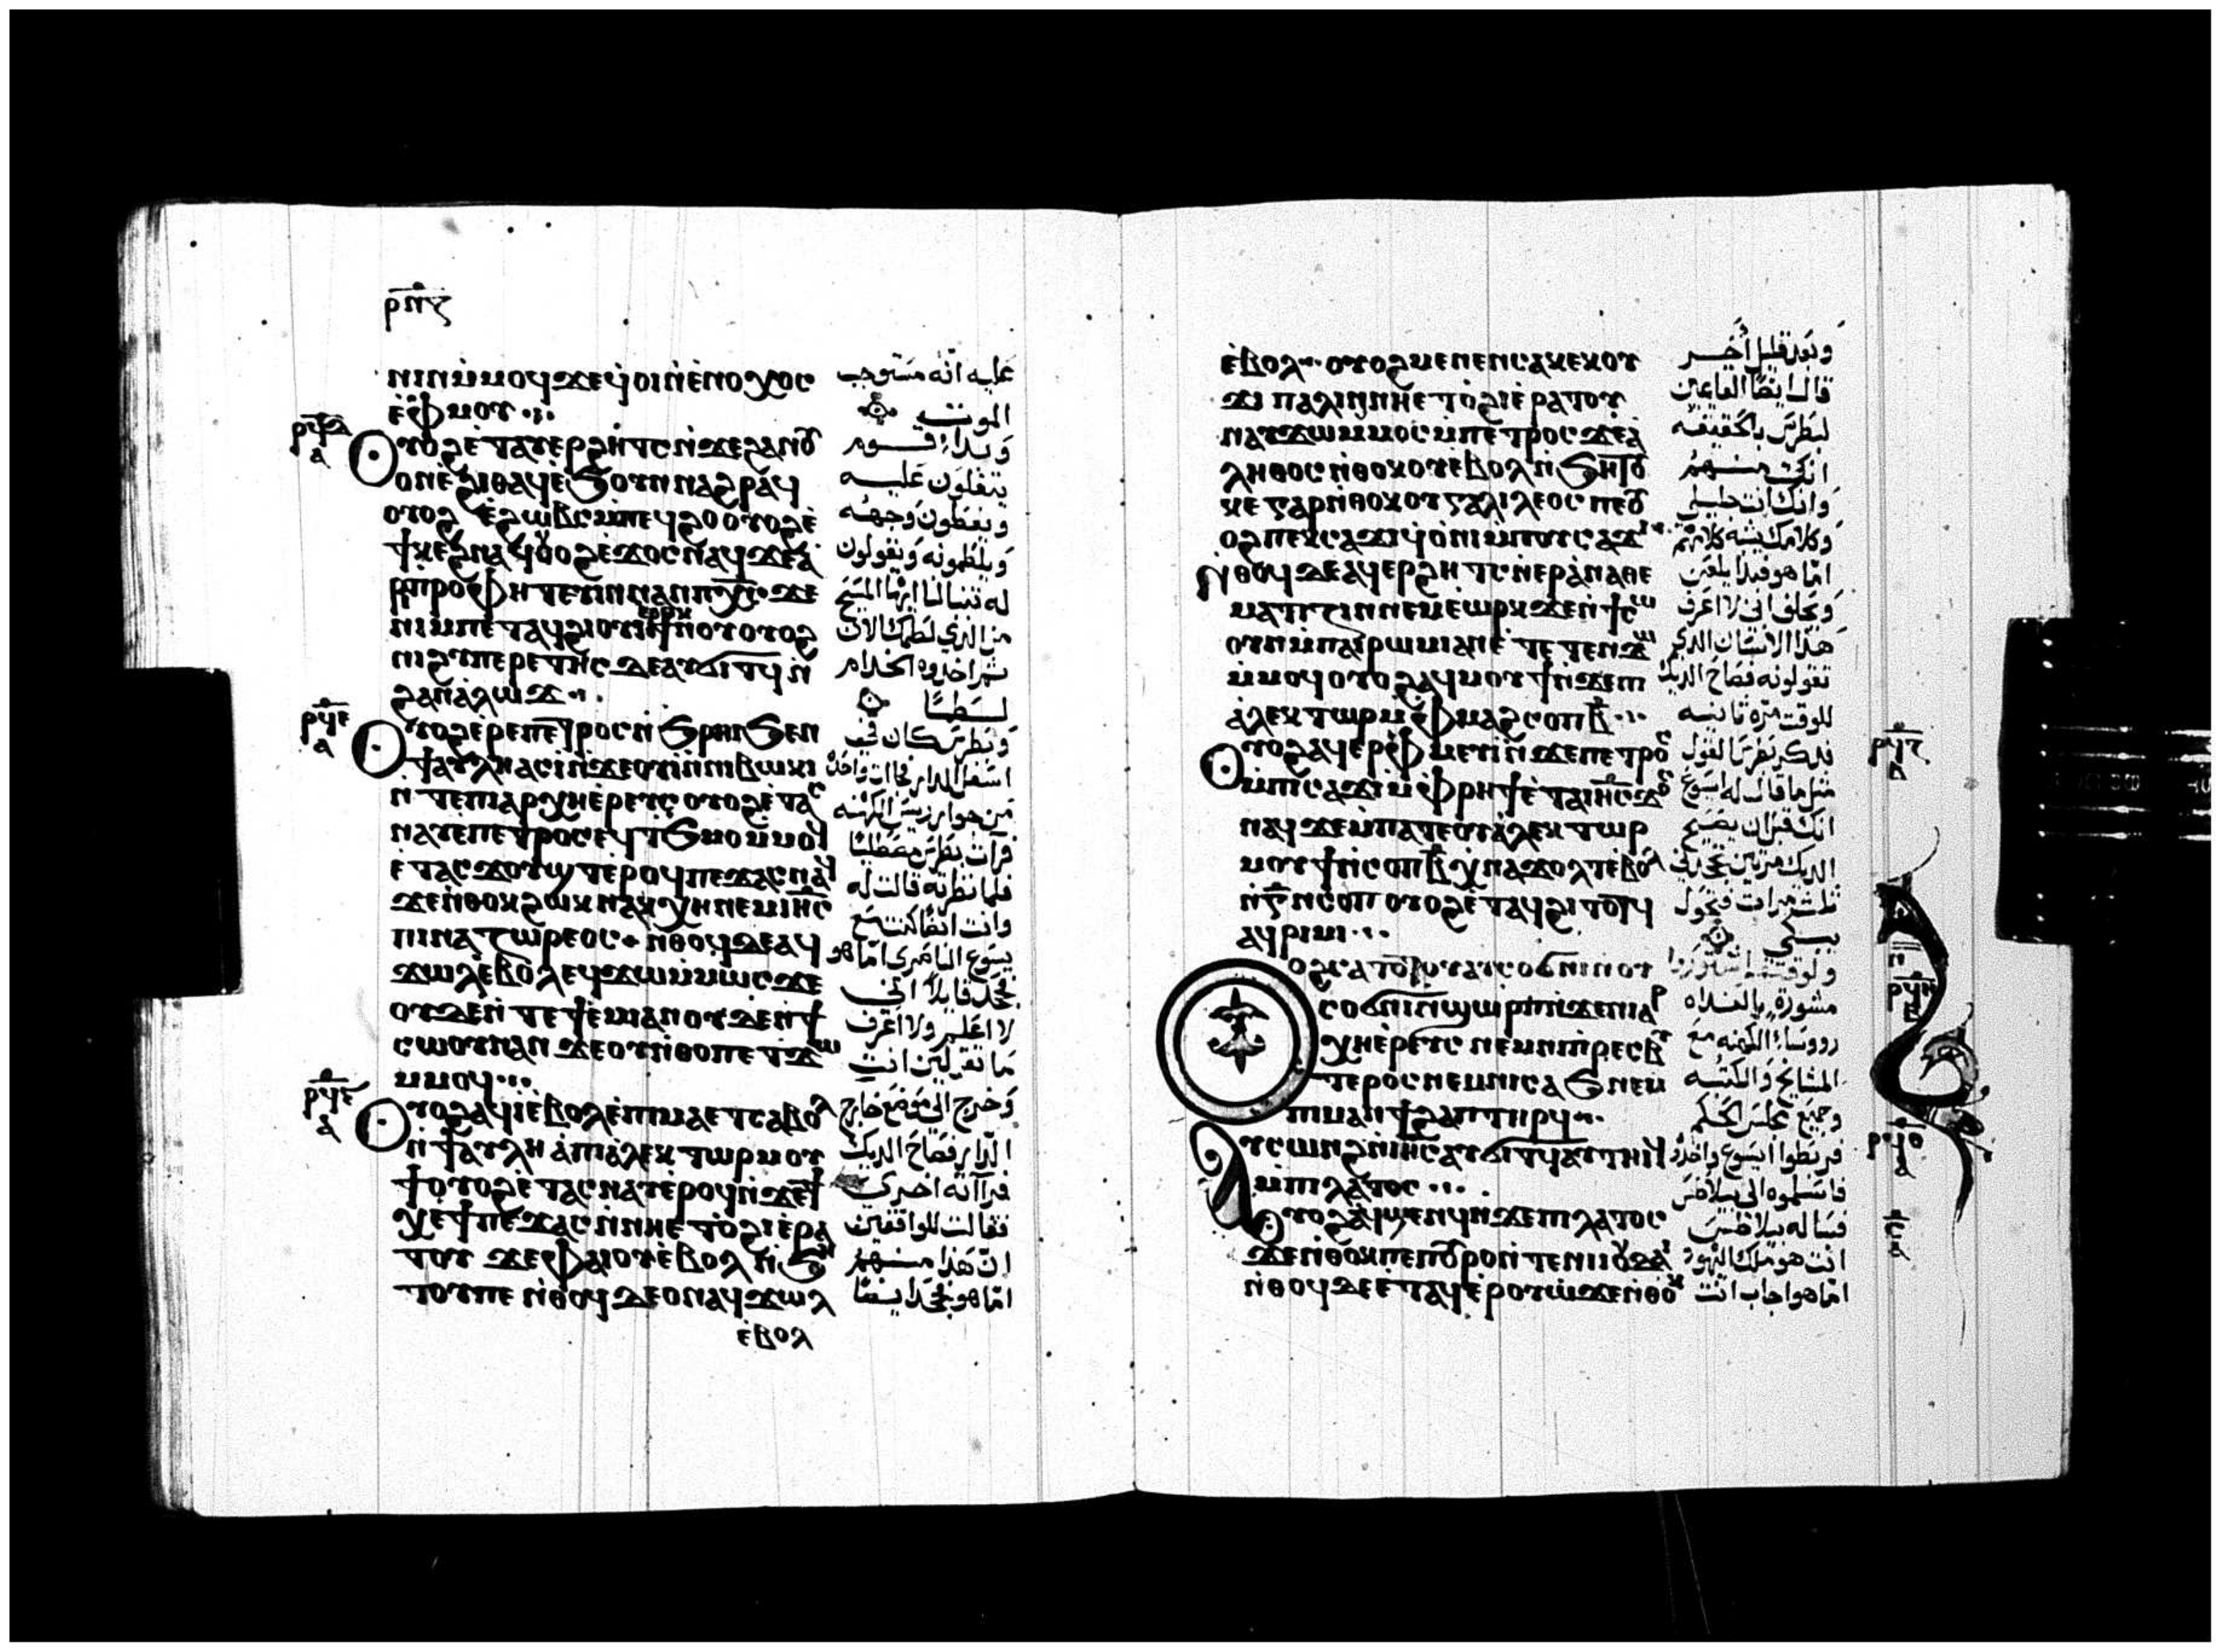 ⲣⲡⲋ
ⲛⲓⲛⲙ̀ⲙⲟϥϫⲉϥ̀ⲟⲓⲛ̀ⲉ̀ⲛⲟⲭⲟⲥ
ⲉ̀ⲫⲙⲟⲩ
ⲣϥⲇ
ⲁ
ⲟⲩⲟϩⲉ̀ⲧⲁⲩⲉⲣϩⲏⲧⲥⲛ̀ϫⲉϩⲁⲛⲟⲩ
ⲟⲛⲉ̀ϩⲓⲑⲁϥⲉ̀ϧⲟⲩⲛⲛⲁϩⲣⲁϥ
ⲟⲩⲟϩ ⲉ̀ϩⲱⲃⲥⲙ̀ⲡⲉϥϩⲟⲟⲩⲟϩⲉ̀
ϯⲕⲉϩⲛⲁϥⲟⲩⲟϩⲉ̀ϫⲟⲥⲛⲁϥϫⲉⲁ̀
ⲣⲓⲡⲣⲟⲫⲏⲧⲉⲩⲓⲛⲛⲁⲛⲡⲭ̅ⲥ̅ϫⲉ
ⲛⲓⲙⲡⲉⲧⲁϥϩⲓⲟⲩⲓⲉⲣⲟⲕϯⲛⲟⲩⲟⲩⲟϩ
ⲛⲓϩⲩⲡⲉⲣⲉⲧⲏⲥⲇⲉⲁⲩϭⲓⲧϥⲛ̀
ϩⲁⲛⲁ̀ⲗⲱϫ
ⲣϥⲉ
ⲁ
ⲟⲩⲟϩⲉ̀ⲣⲉⲡⲉⲧⲣⲟⲥⲛ̀ϧⲣⲏⲓϧⲉⲛ
ϯⲁⲩⲗⲏⲁⲥⲓ̀ⲛ̀ϫⲉⲟⲩⲓ̀ⲛ̀ⲛⲓⲃⲱⲕⲓ
ⲛ̀ⲧⲉⲡⲓⲁⲣⲭⲏⲉ̀ⲣⲉⲩⲥⲟⲩⲟϩⲉ̀ⲧⲁⲥ
ⲛⲁⲩⲉ̀ⲡⲉⲧⲣⲟⲥⲉϥϯϧⲙⲟⲙ̀ⲙⲟϥ
ⲉ̀ⲧⲁⲥϫⲟⲩϣⲧⲉ̀ⲣⲟϥⲡⲉϫⲁⲥⲛⲁϥ
ϫⲉⲛ̀ⲑⲟⲕϩⲱⲕⲛⲁⲕⲭⲏⲛⲉⲙⲓⲏ̅ⲥ̅
ⲡⲓⲛⲁⲍⲱⲣⲉⲟⲥ ⲛ̀ⲑⲟϥⲇⲉⲁϥ
ϫⲱⲗⲉ̀ⲃⲟⲗⲉϥϫⲱⲙ̀ⲙⲱⲥϫⲉ
ⲟⲩⲇⲉⲛ̀ⲧⲉϯⲉ̀ⲙⲓⲁⲛⲟⲩⲇⲉⲛ̀ϯ
ⲥⲱⲟⲩⲛⲁⲛ ϫⲉⲟⲩⲛ̀ⲑⲟⲡⲉⲧϫⲱ
ⲙ̀ⲙⲟϥ
ⲣϥⲋ
ⲁ
ⲟⲩⲟϩⲁϥⲓ̀ⲉ̀ⲃⲟⲗⲉ̀ⲡⲓⲙⲁⲉⲧⲥⲁⲃⲟⲗ
ⲛ̀ϯⲁⲩⲗⲏ ⲁ̀ⲡⲓⲁ̀ⲗⲉⲕⲧⲱⲣⲙⲟⲩ
ϯⲟⲩⲟϩⲉⲧⲁⲥⲛⲁⲩⲉ̀ⲣⲟϥⲛ̀ϫⲉϯ
ⲭⲉϯⲡⲉϫⲁⲥⲛ̀ⲛⲏⲉⲧⲟ̀ϩⲓⲉ̀ⲣⲁ
ⲧⲟⲩ ϫⲉⲫⲁⲓⲟⲩⲉ̀ⲃⲟⲗⲛ̀ϧⲏ
ⲧⲟⲩⲡⲉ ⲛ̀ⲑⲟϥⲇⲉⲟⲛⲁϥϫⲱⲗ
ⲉ̀ⲃⲟⲗ
عليه انه مستوجب
الموت
وبدا قوم
يتفلون عليه
ويغطون وجهه
ويلطمونه ويقولون
له تنبا لنا ايها المسيح
من الذي لطمك الان
ثم اخذوه الخدام
لطما
وبطرس كان في
اسفل الدار فجات واحده
من جوار رييس الكهنه
فرات بطرس مصطليا
فلما نظرته قالت له
وانت ايضا كنت مع
يسوع الناصري اما هو
فجحد قايلا انني
لا اعلم ولا اعرف
ما تقولين انت
وخرج الى موضع خارج
الدار فصاح الديك
فراته اخرى
فقالت للواقفين
ان هذا منهم
اما هو فجحد ايضا
ⲉ̀ⲃⲟⲗ ⲟⲩⲟϩⲙⲉⲛⲉⲛⲥⲁⲕⲉⲕⲟⲩ
ϫⲓ ⲡⲁⲗⲓⲛⲛⲏⲉⲧⲟ̀ϩⲓⲉ̀ⲣⲁⲧⲟⲩ
ⲛⲁⲩϫⲱⲙⲙⲟⲥⲙ̀ⲡⲉⲧⲣⲟⲥϫⲉⲁ̀
ⲗⲏⲑⲟⲥⲛ̀ⲑⲟⲕⲟⲩⲉ̀ⲃⲟⲗⲛ̀ϧⲏⲧⲟⲩ
ⲕⲉⲅⲁⲣⲛ̀ⲑⲟⲕⲟⲩⲅⲁⲗⲓⲗⲉⲟⲥⲡⲉⲟⲩ
ⲟϩⲡⲉⲕⲥⲁϫⲓϥ̀ⲟⲛⲓⲙ̀ⲡⲟⲩⲥⲁϫⲓ
ⲛ̀ⲑⲟϥⲇⲉⲁϥⲉⲣϩⲏⲧⲥⲛ̀ⲉⲣⲁ̀ⲛⲁⲑⲉ
ⲙⲁⲧⲓⲍⲓⲛⲛⲉⲙⲉ̀ⲱⲣⲕϫⲉⲛ̀ϯⲥⲱ
ⲟⲩⲛⲙ̀ⲡⲁⲓⲣⲱⲙⲓⲁⲛⲉ̀ⲧⲉⲧⲉⲛϫⲱ
ⲙ̀ⲙⲟϥⲟⲩⲟϩⲁϥⲙⲟⲩϯⲛ̀ϫⲉⲡⲓ
ⲁ̀ⲗⲉⲕⲧⲱⲣⲙ̀ⲫⲙⲁϩⲥⲟⲡⲃ̅
ⲣϥⲍ
ⲟⲩⲟϩⲁϥⲉⲣⲫⲙⲉⲩⲓ̀ⲛ̀ϫⲉⲡⲉⲧⲣⲟⲥ
ⲙ̀ⲡⲓⲥⲁϫⲓⲙ̀ⲫⲣⲏϯⲉ̀ⲧⲁⲓⲏ̅ⲥ̅ϫⲟⲥ
ⲛⲁϥϫⲉⲙ̀ⲡⲁⲧⲉⲟⲩⲁ̀ⲗⲉⲕⲧⲱⲣ
ⲙⲟⲩϯⲛ̀ⲥⲟⲡⲃ̅ⲭⲛⲁϫⲟⲗⲧⲉ̀ⲃⲟⲗ
ⲛ̀ⲅ̅ⲛ̀ⲥⲟⲡⲟⲩⲟϩⲉ̀ⲧⲁϥϩⲓⲧⲟⲧϥ
ⲁϥⲣⲓⲙⲓ
ⲣϥⲏ
ⲟϩⲥⲁⲧⲟⲧⲟⲩⲁⲩⲥⲟϭⲛⲓⲛⲟⲩ
ⲥⲟϭⲛⲓⲛ̀ϣⲱⲣⲡⲛ̀ϫⲉⲛⲓⲁⲣ
ⲭⲏⲉ̀ⲣⲉⲩⲥ ⲛⲉⲙⲛⲓⲡⲣⲉⲥⲃⲩ
ⲧⲉⲣⲟⲥⲛⲉⲙⲛⲓⲥⲁϧⲛⲉⲙ
ⲡⲓⲙⲁⲛϯϩⲁⲡⲧⲏⲣϥ
ⲣϥⲑ
ⲁ
ⲁⲩⲥⲱⲛϩⲛ̀ⲓⲏ̅ⲥ̅ⲁⲩϭⲓⲧϥⲁⲩⲧⲏⲓϥ
ⲙ̀ⲡⲓⲗⲁⲧⲟⲥ
ⲥ
ⲁ
ⲟⲩⲟϩⲁϥϣⲉⲛϥⲛ̀ϫⲉⲡⲓⲗⲁⲧⲟⲥ
ϫⲉⲛ̀ⲑⲟⲕⲡⲉⲡⲟⲩⲣⲟⲛ̀ⲧⲉⲛⲓⲓⲟⲩⲇⲁⲓ
ⲛ̀ⲑⲟϥⲇⲉⲉⲧⲁϥⲉ̀ⲣⲟⲩⲱ̀ϫⲉⲛ̀ⲑⲟⲕ
وبعد قليل اخر
قال ايضا القاعين
لبطرس بالحقيقه
انك منهم
وانك انت جليلي
وكلامك يشبه كلامهم
اما هو فبدا يلعن
ويحلف اني لا اعرف
هذا الانسان الذي
تقولونه فصاح الديك
للوقت مره ثانيه
فذكر بطرس القول
مثل ما قال له ايسوع
انك قبل ان يصيح
الديك مرتين تجحدني
ثلث مرات فجعل
يبكي
وللوقت تشاوروا
مشورة بالغداه
رووساء الكهنه مع
المشايخ والكتبه
وجميع مجلس الحكم
فربطوا ايسوع واخذوه
فاسلموه الى بيلاطس
فساله بيلاطس
انت هو ملك اليهود
اما هو اجاب انت